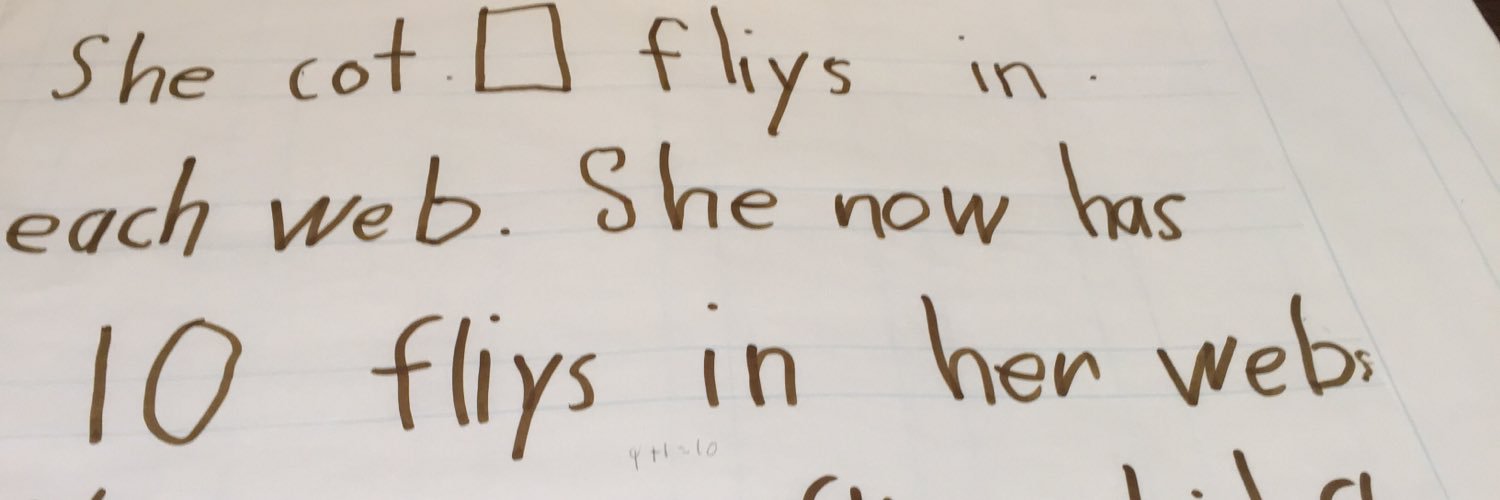 She cot □ fliys in
each web. She now has
10 fliys in her webs
9+1=10